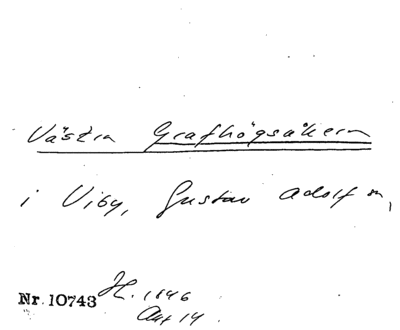 Västra Grafhögsåkern
i Viby, Gustav Adolf sn,
Nr. 10743 H. 1846
Akt 14